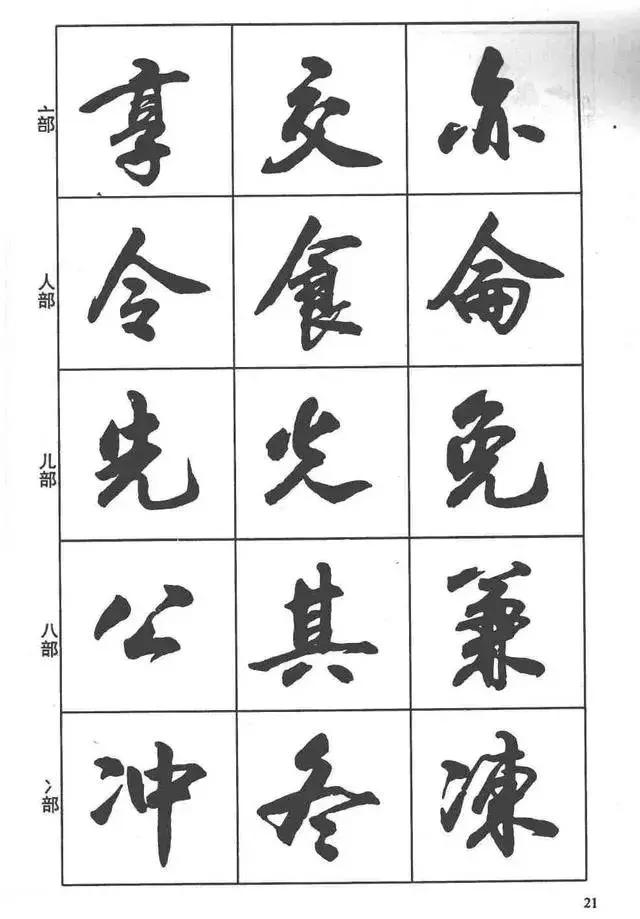 亠部 享 交 亦
人部 令 食 侖
儿部 先 光 免
八部 公 其 兼
冫部 冲 冬 凍
21